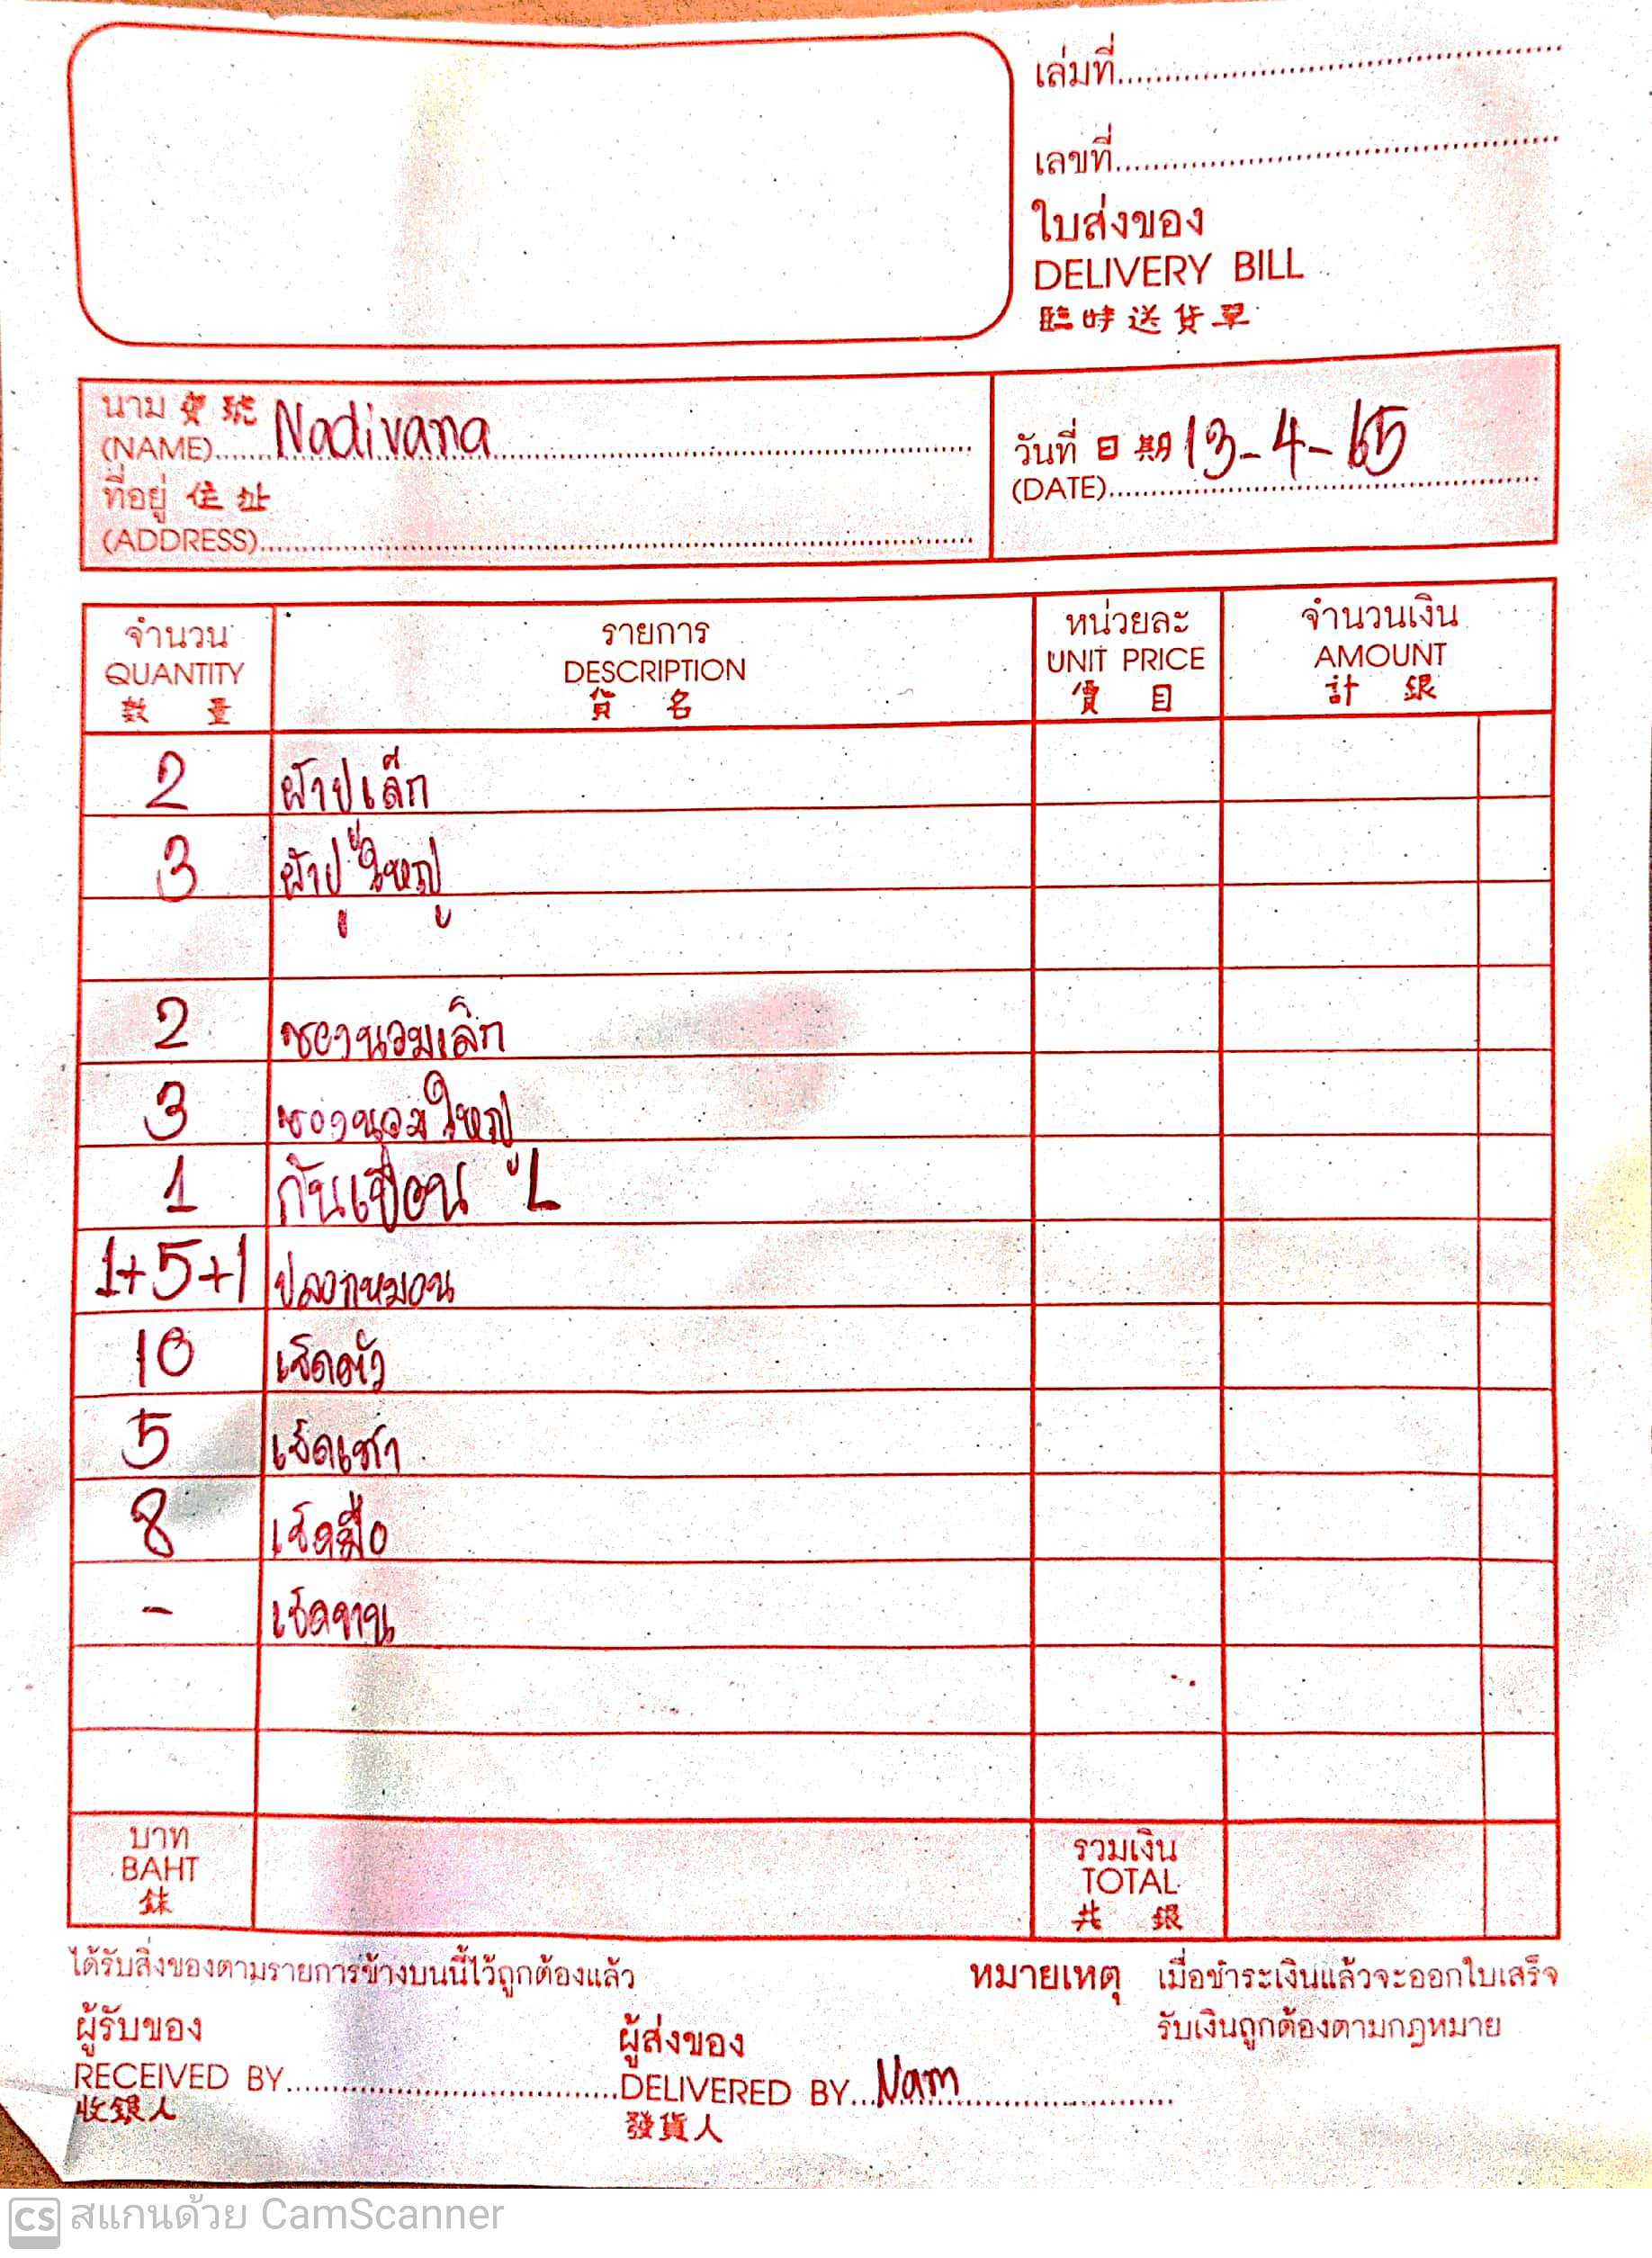 เล่มที่
เลขที่
ใบส่งของ
DELIVERY BILL
臨時送貨單
นาม 寶號 Nadivana
(NAME)
ที่อยู่ 住址
(ADDRESS)
วันที่ 日期 13-4-65
(DATE)
จำนวน รายการ หน่วยละ จำนวนเงิน
QUANTITY DESCRIPTION UNIT PRICE AMOUNT
數量 貨名 價目 計銀
2 ผ้าปูเล็ก
3 ผ้าปูใหญ่
2 ซองนวมเล็ก
3 ซองนวมใหญ่
1 กันเปื้อน L
1+5+1 ปลอกหมอน
10 เช็ดตัว
5 เช็ดเท้า
8 เช็ดมือ
- เช็ดจาน
บาท รวมเงิน
BAHT TOTAL
銖 共銀
ได้รับสิ่งของตามรายการข้างบนนี้ไว้ถูกต้องแล้ว
หมายเหตุ เมื่อชำระเงินแล้วจะออกใบเสร็จ
รับเงินถูกต้องตามกฎหมาย
ผู้รับของ ผู้ส่งของ
RECEIVED BY DELIVERED BY Nam
收銀人 發貨人
CS สแกนด้วย CamScanner